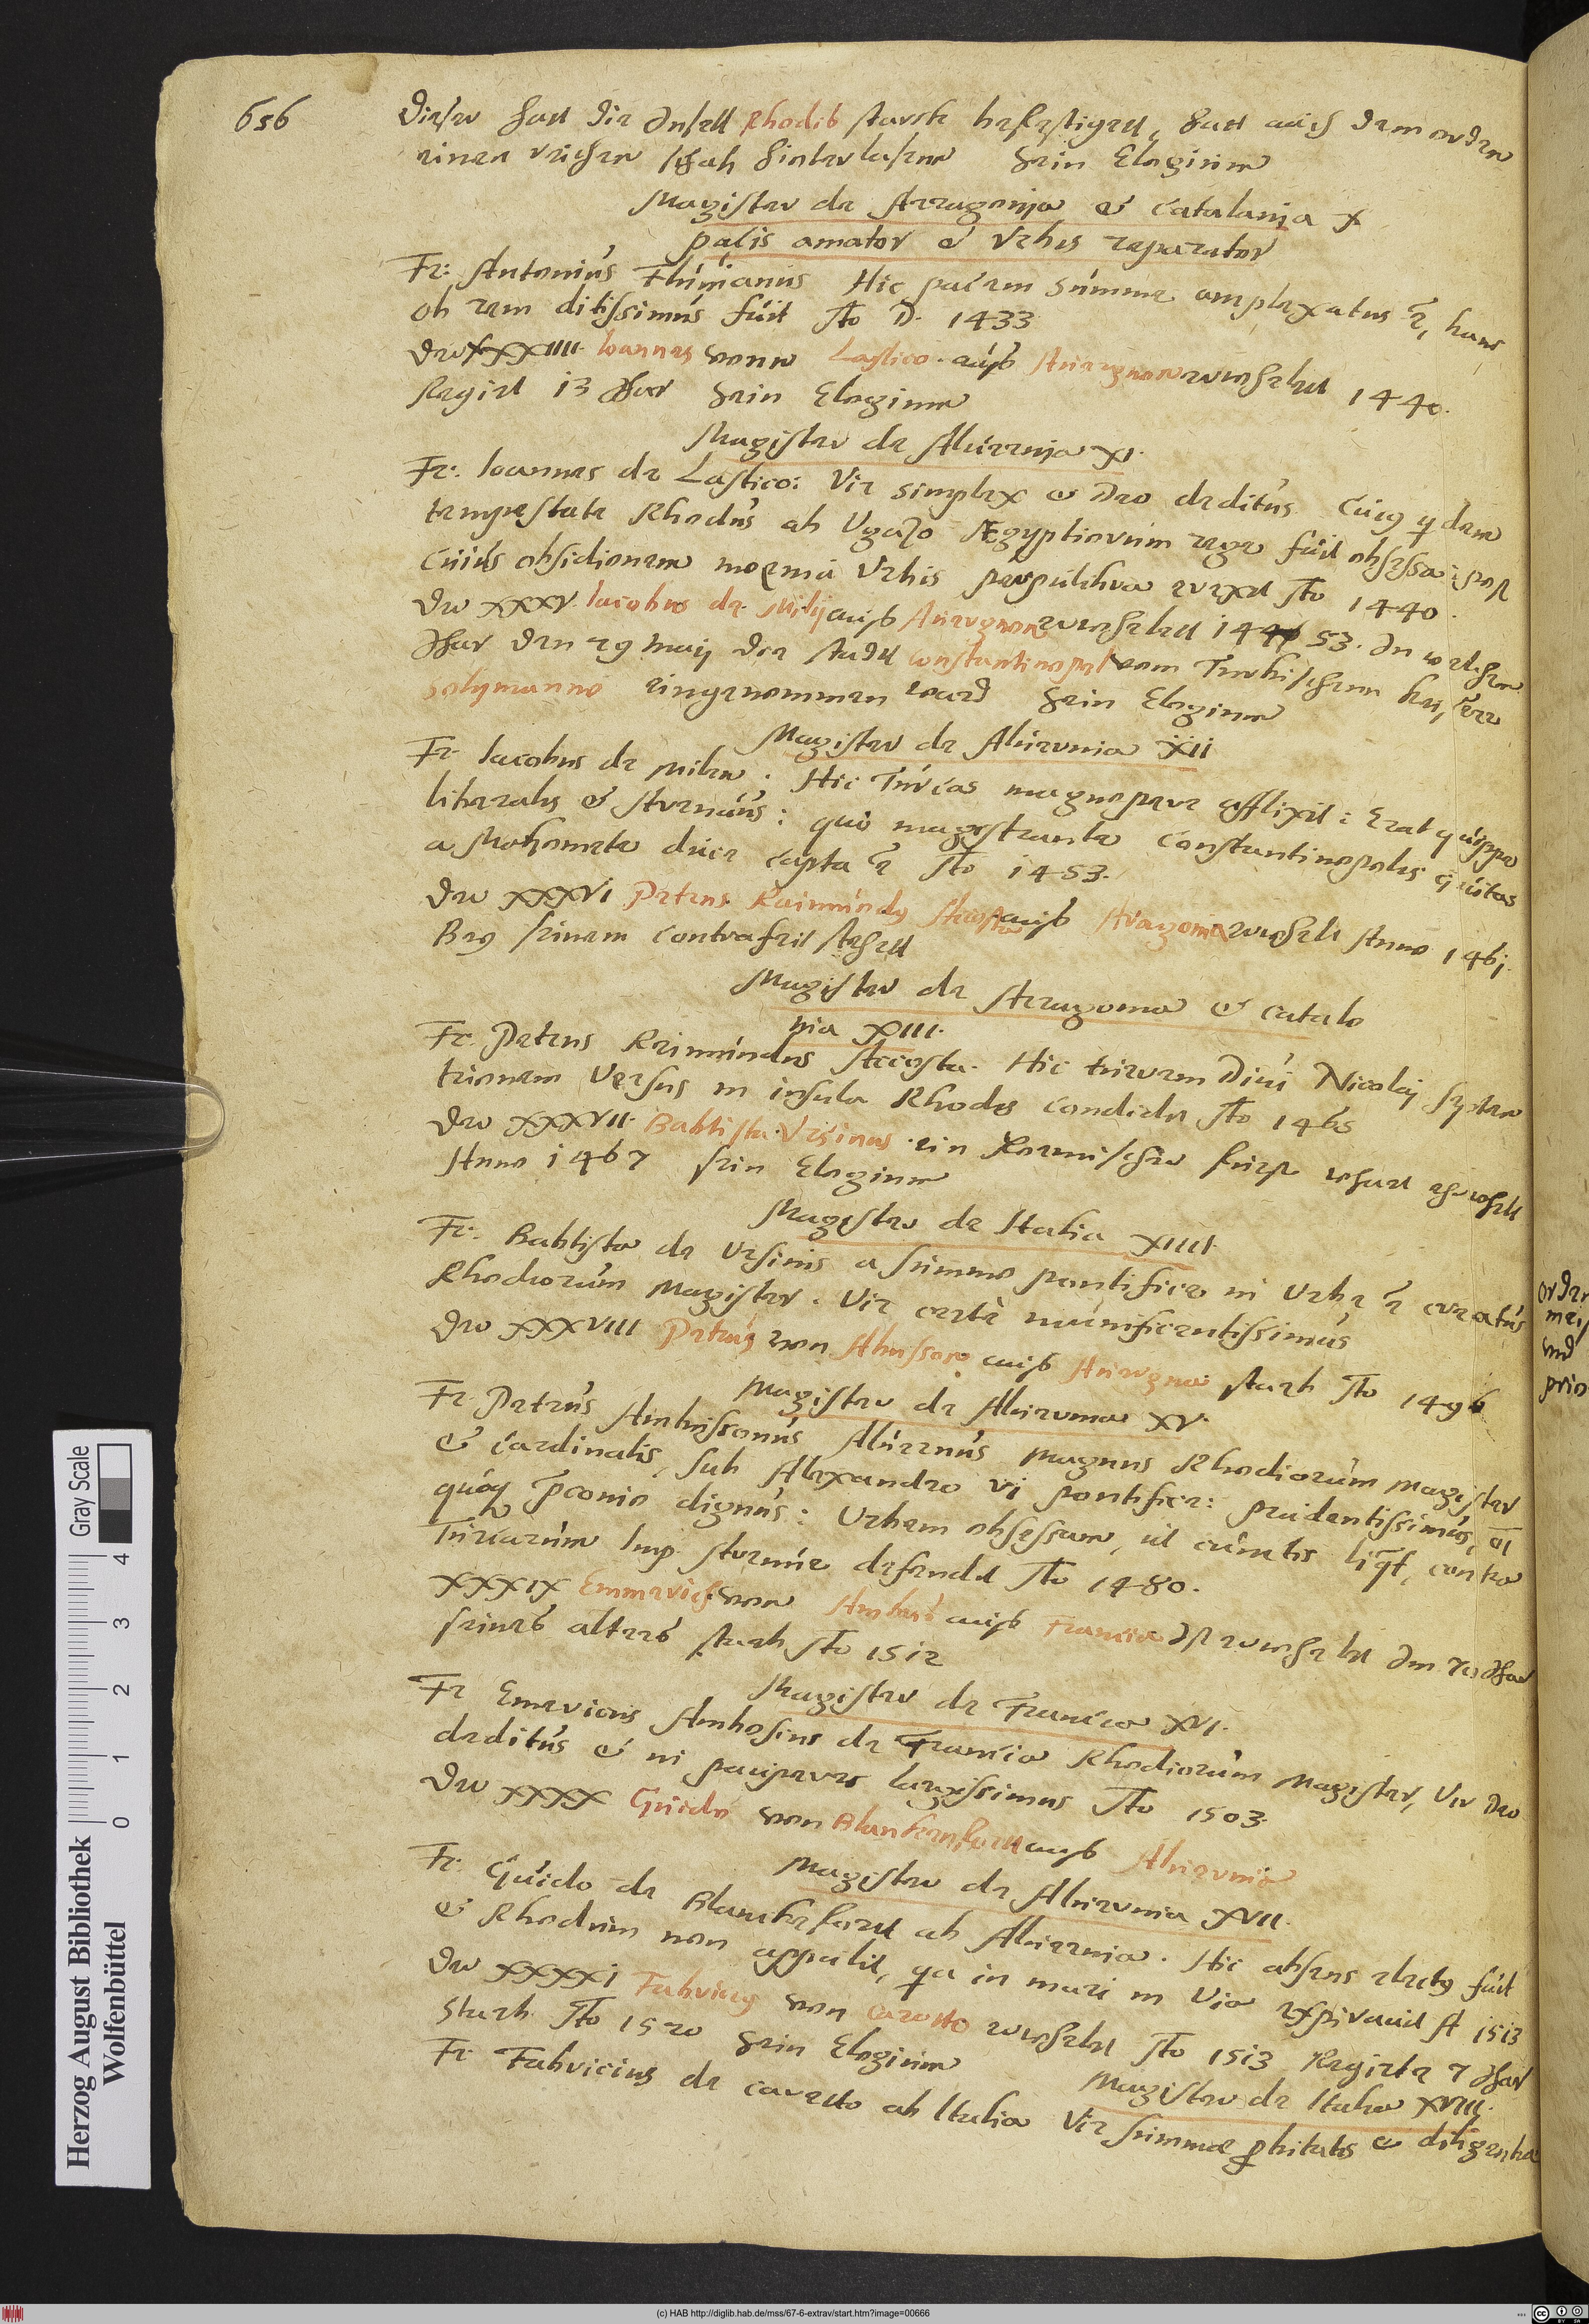 656
Dieser hatt die Insell Rhodis starck befestigett, hatt auch dem orden
einen reichen schatz hinterlasenn Sein Elogium
Magister de Arragonia et Catalania X
pacis amator et Vrbis reparator
Fr: Antonius Fluuianus Hic pacem summe amplexatus ē, hanc
ob rem ditissimus fuit Ao D. 1433
Der XXXIIII. Ioannes vonn Lastico. auß Aluergnon erwehelett 1440.
Regirt 13 Jhar Sein Elogium
Magister de Aluernia XI.
Fr: Ioannes de Lastico: Vir simplex et Deo deditus Cuiq qdem
tempestate Rhodus ab Vgazo Ægyptiorum rege fuit obsessa: post
Cuius obsidionem moenia Vrbis perpulchra erexit Ao 1440.
Der XXXV. Iacobus de Milij auß Auergnon erwehelett 1453. In welchem
Jhar den 29 Maij die stadt Constantinopel vom Turkischenn keyserr
Solymanno eingenommen ward Sein Elogium
Magister de Aluernia XII
Fr Iacobus de Milen. Hic Turcas magnopere afflixit: Erat quippe
liberalis et strenuus: quo magistrante Constantinopolis ciuitas
a Mahomete duce capta ē Ao 1453.
Der XXXVI Petrus Raimundy Acosta auß Aragonia erwehelt Anno 1461.
Bey seinem contrafeit stehett
Magister de Arragonia et catalo
nia XIII.
Fr. Petrus Reimundus Accosta. Hic turrem Diui Nicolaj septen
trionem Versus in insula Rhodes condidit Ao 1465
Der XXXVII. Babtista Vrsinus. ein Roemischer furst wharr erwehelt
Anno 1467 sein Elogium
Magister de Italia XIIII.
Fr. Babtista de Vrsinis a summo pontifice in Vrbe ē creatus
Rhodiorum Magister. Vir certè munificentissimus
Der XXXVIII Petrus von Abusson auß Auergnia starb Ao 1496
Magister de Aluernia XV.
Fr. Petrus Ambussonus Aluernus Magnus Rhodiorum Magister
et Cardinalis, sub Alexandro vj pontifice: prudentissimus, oī
quoq p̄conio dignus: Vrbem obsessam, ut cunctis liq̄t, contra
Turcarum Imp. strenue defendit Ao 1480.
XXXIX Emmerich von Ambasi auß Francia Ist erwehelet Im 70 Jhar
seines alters starb Ao 1512
Magister de Francia XVI.
Fr Emericus Ambosius de Francia Rhodiorum Magister, Vir Deo
deditus et in pauperes largissimus Ao 1503.
Der XXXX Guido von Blankenfortt auß Aluernia
Magister de Aluernia XVII.
Fr. Guido de Blanckefortt ab Aluernia. Hic absens electq fuit
et Rhodum non appulit, qa in mari in Via expirauit A 1513
Der XXXXI Fabricius von Caretto erwehelet Ao 1513 Regirte 7 Jhar
Starb Ao 1520 Sein Elogium
Magister de Italia XVIII.
Fr Fabricius de carecto ab Italia Vir summae probitatis et diligentia
orden
meis
vnd
prio
Herzog August Bibliothek
Wolfenbüttel
0 1 2 3 4
Gray Scale
(c) HAB http://diglib.hab.de/mss/67-6-extrav/start.htm?image=00666